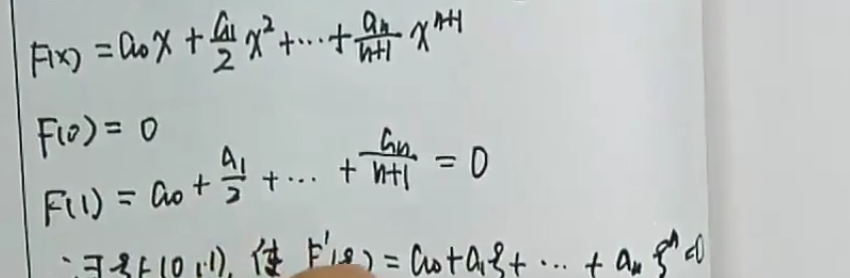 F(x) = a₀x + a₁/2 x² + ⋯ + aₙ/(n+1) xⁿ⁺¹
F(0) = 0
F(1) = a₀ + a₁/2 + ⋯ + aₙ/(n+1) = 0
∴∃ξ∈(0,1), 使 F'(ξ) = a₀+a₁ξ+ ⋯ + aₙξⁿ=0